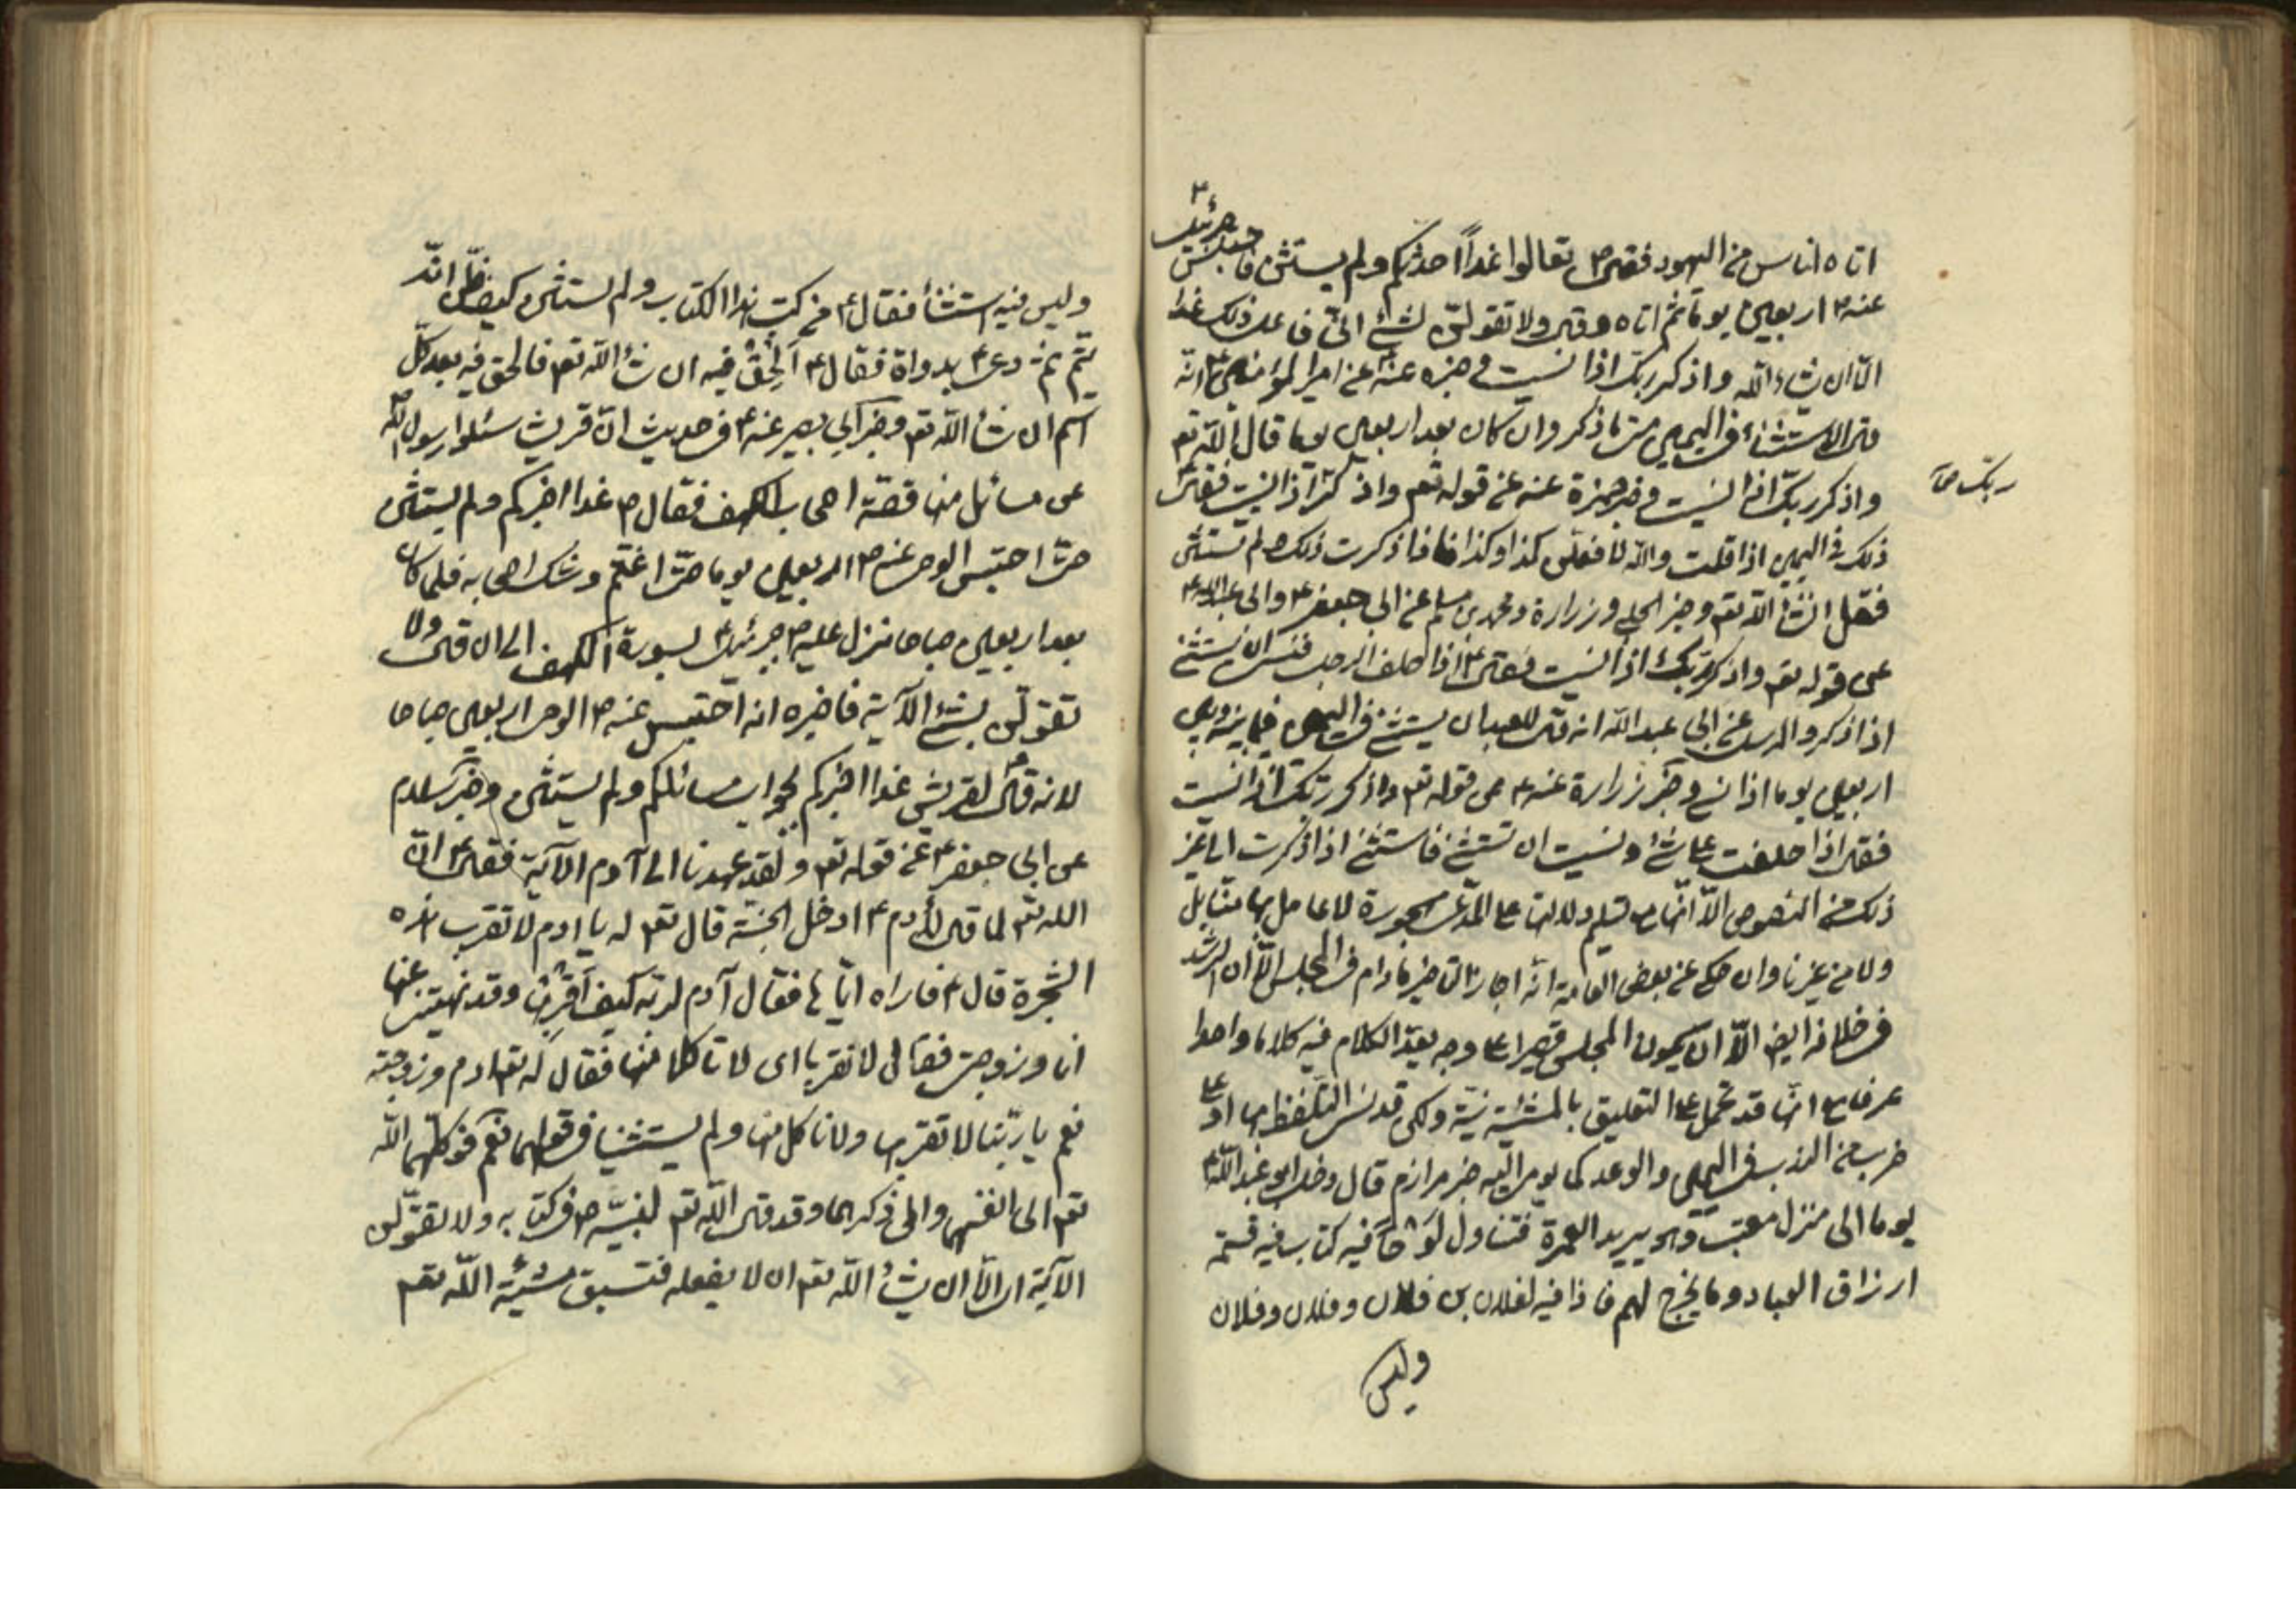 اتاه اناس من اليهود فقال ص تعالوا غداً احدثكم ولم يستثن فاحتبس جبرئيل ع
عنه ص اربعين يوما ثم اتاه وقال ولا تقولن لشئ اني فاعل ذلك غدا
الا ان شاء الله واذكر ربك اذا نسيت وفي خبره عنه ع عن امير المؤمنين ع انه
قال الاستثناء في اليمين متى ما ذكر وان كان بعد اربعين يوما قال الله تعم
واذكر ربك اذا نسيت وخبر حمزة عنه عن قوله تعم واذكر اذا نسيت فقال
ربك صح
ذلك في اليمين اذا قلت والله لا فعلن كذا وكذا فاذا ذكرت ذلك لم تستثن
فقل انشاء الله تعم وخبر الحلبي وزرارة ومحمد بن مسلم عن ابي جعفر ع وابي عبد الله ع
عن قوله تعم واذكر ربك اذا نسيت فقال ع اذا حلف الرجل فنسى ان يستثنى
اذا ذكر والمرسل عن ابي عبد الله انه قال للعبد ان يستثنى في اليمين فيما بينه وبين
اربعين يوما اذا نسى وخبر زرارة عنه ع عن قوله تعم واذكر ربك اذا نسيت
فقال اذا حلفت على شئ ونسيت ان تستثنى فاستثن اذا ذكرت الى غير
ذلك من النصوص الا انها مع تسليم دلالتها على المدعى مهجورة لا عامل بها منا بل
ولا من غيرنا وان حكى عن بعض العامة انه اجاز التاخير ما دام في المجلس الا ان الرشد
في خلافه ايض الا ان يكون المجلس قصيرا على وجه يعد الكلام فيه كلاما واحدا
عرفا مع انها قد تحمل على التعليق بالمشية نية ولكن قد نسى التلفظ بها او على
ضرب من الندب في اليمين والوعد كما يومى اليه خبر مرازم قال دخل ابو عبد الله ع
يوما الى منزل معتب وهو يريد العمرة فتناول لوحا فيه كتاب فيه قسمة
ارزاق العباد وما يخرج لهم فاذا فيه لفلان بن فلان وفلان وفلان
وليس
وليس فيه استثنأ فقال ع من كتب هذا الكتاب ولم يستثن كيف ظن انه
يتم ثم دعى بدواة فقال ع الحق فيه ان شأ الله تعم فالحق فيه بعد كل
اسم ان شأ الله تعم وخبر ابي بصير عنه ع في حديث ان قريش سئلوا رسول الله ص
عن مسائل منها قصة اصحاب الكهف فقال ص غدا اخبركم ولم يستثن
حتى احتبس الوحى عنه ص اربعين يوما حتى اغتم وشك اصحابه فلما كان
بعد اربعين صباحا نزل عليه ص جبرئيل ع بسورة الكهف الى ان قال ولا
تقولن لشئ الآية فاخبره انه احتبس عنه ص الوحى اربعين صباحا
لانه قال لقريش غدا اخبركم بجواب مسائلكم ولم يستثن وخبر سلام
عن ابي جعفر ع عن قوله تعم ولقد عهدنا الى آدم الآية فقال ع ان
الله تعم لما قال لآدم ع ادخل الجنة قال تعم له يا ادم لا تقرب هذه
الشجرة قال ع فاراه اياها فقال آدم لربه كيف اقربها وقد نهيتنى عنها
انا وزوجتى فقال لا تقربا اى لا تاكلا منها فقال له تعم ادم وزوجته
نعم يا ربنا لا نقربها ولا ناكل منها ولم يستثنيا في قولهما نعم فوكلهما الله
تعم الى انفسهما والى ذكرهما وقد قال الله تعم لنبيه ص في كتابه ولا تقولن
الآية اى الا ان يشأ الله تعم ان لا يفعله فتسبق مشيئة الله تعم